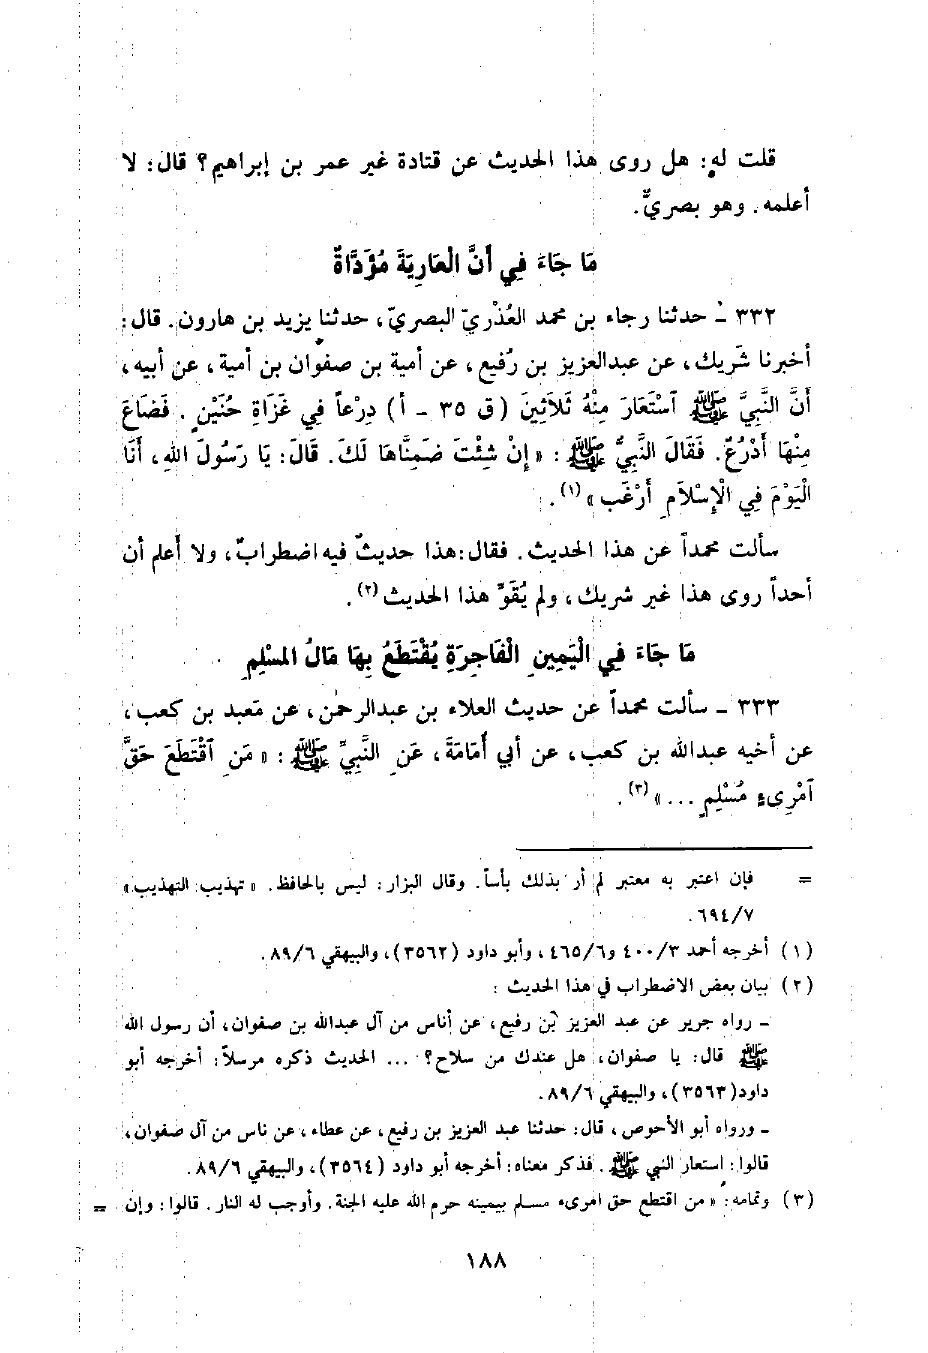 قلت له: هل روى هذا الحديث عن قتادة غير عمر بن إبراهيم؟ قال: لا
أعلمه. وهو بصريٌّ.
مَا جَاءَ فِي أَنَّ الْعَارِيَةَ مُؤَدَّاةٌ
٣٣٢ ـ حدثنا رجاء بن محمد العُذْريّ البصريّ، حدثنا يزيد بن هارون. قال:
أخبرنا شَريك، عن عبدالعزيز بن رُفيع، عن أمية بن صفوان بن أمية، عن أبيه،
أَنَّ النَّبِيَّ ﷺ ٱسْتَعَارَ مِنْهُ ثَلاَثِينَ (ق ٣٥ - أ) دِرْعاً فِي غَزَاةِ حُنَيْنٍ. فَضَاعَ
مِنْهَا أَدْرُعٌ. فَقَالَ النَّبِيُّ ﷺ: «إِنْ شِئْتَ ضَمِنَّاهَا لَكَ. قَالَ: يَا رَسُولَ اللهِ، أَنَا
الْيَوْمَ فِي الْإِسْلاَمِ أَرْغَب» (١).
سألت محمداً عن هذا الحديث. فقال: هذا حديثٌ فيه اضطرابٌ، ولا أعلم أن
أحداً روى هذا غير شريك، ولم يُقَوِّ هذا الحديث (٢).
مَا جَاءَ فِي الْيَمِينِ الْفَاجِرَةِ يُقْتَطَعُ بِهَا مَالُ المسْلِمِ
٣٣٣ ـ سألت محمداً عن حديث العلاء بن عبدالرحمٰن، عن مَعبد بن كعب،
عن أخيه عبدالله بن كعب، عن أبي أُمَامَةَ، عَنِ النَّبِيِّ ﷺ: «مَنِ ٱقْتَطَعَ حَقَّ
ٱمْرِىءٍ مُسْلِمٍ ...» (٣).
= فإن اعتبر به معتبر لم أر بذلك بأساً. وقال البزار: ليس بالحافظ. «تهذيب التهذيب»
٦٩٤/٧.
(١) أخرجه أحمد ٤٠٠/٣ و٤٦٥/٦، وأبو داود (٣٥٦٢)، والبيهقي ٨٩/٦.
(٢) بيان بعض الاضطراب في هذا الحديث:
ـ رواه جرير عن عبد العزيز بن رفيع، عن أناس من آل عبدالله بن صفوان، أن رسول الله
ﷺ قال: يا صفوان، هل عندك من سلاح؟ ... الحديث ذكره مرسلاً: أخرجه أبو
داود(٣٥٦٣)، والبيهقي ٨٩/٦.
ـ ورواه أبو الأحوص، قال: حدثنا عبد العزيز بن رفيع، عن عطاء، عن ناس من آل صفوان،
قالوا: استعار النبي ﷺ. فذكر معناه: أخرجه أبو داود (٣٥٦٤)، والبيهقي ٨٩/٦.
(٣) وتمامه: «من اقتطع حق امرىء مسلم بيمينه حرم الله عليه الجنة. وأوجب له النار. قالوا: وإن =
١٨٨